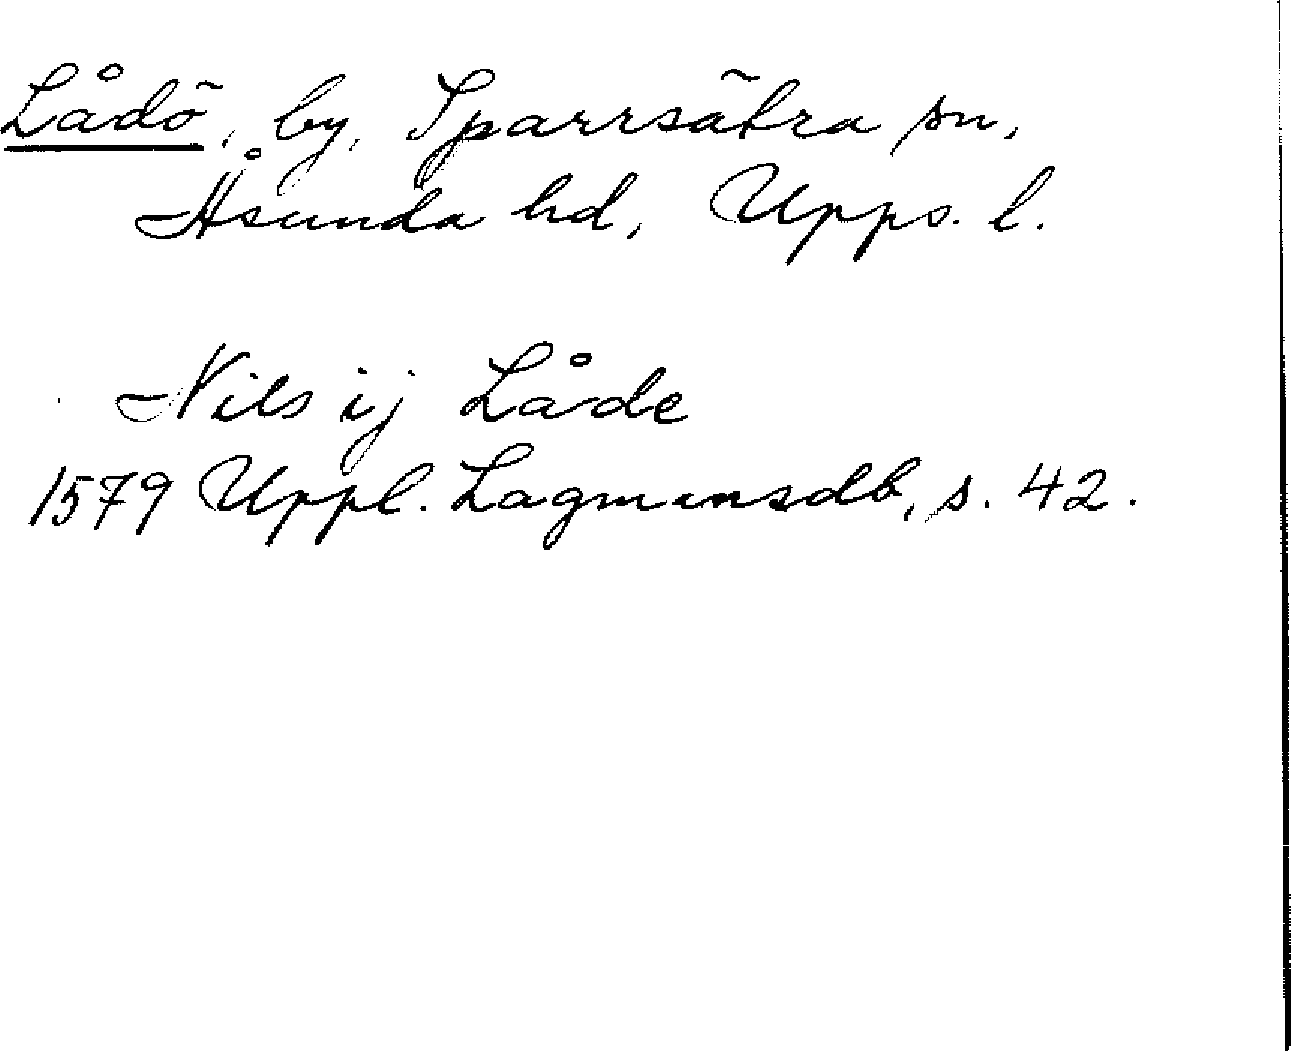 Lådö, by, Sparrsätra sn,
Åsunda hd, Upps. l.
Nils ij Låde
1579 Uppl. Lagmansdb, s. 42.